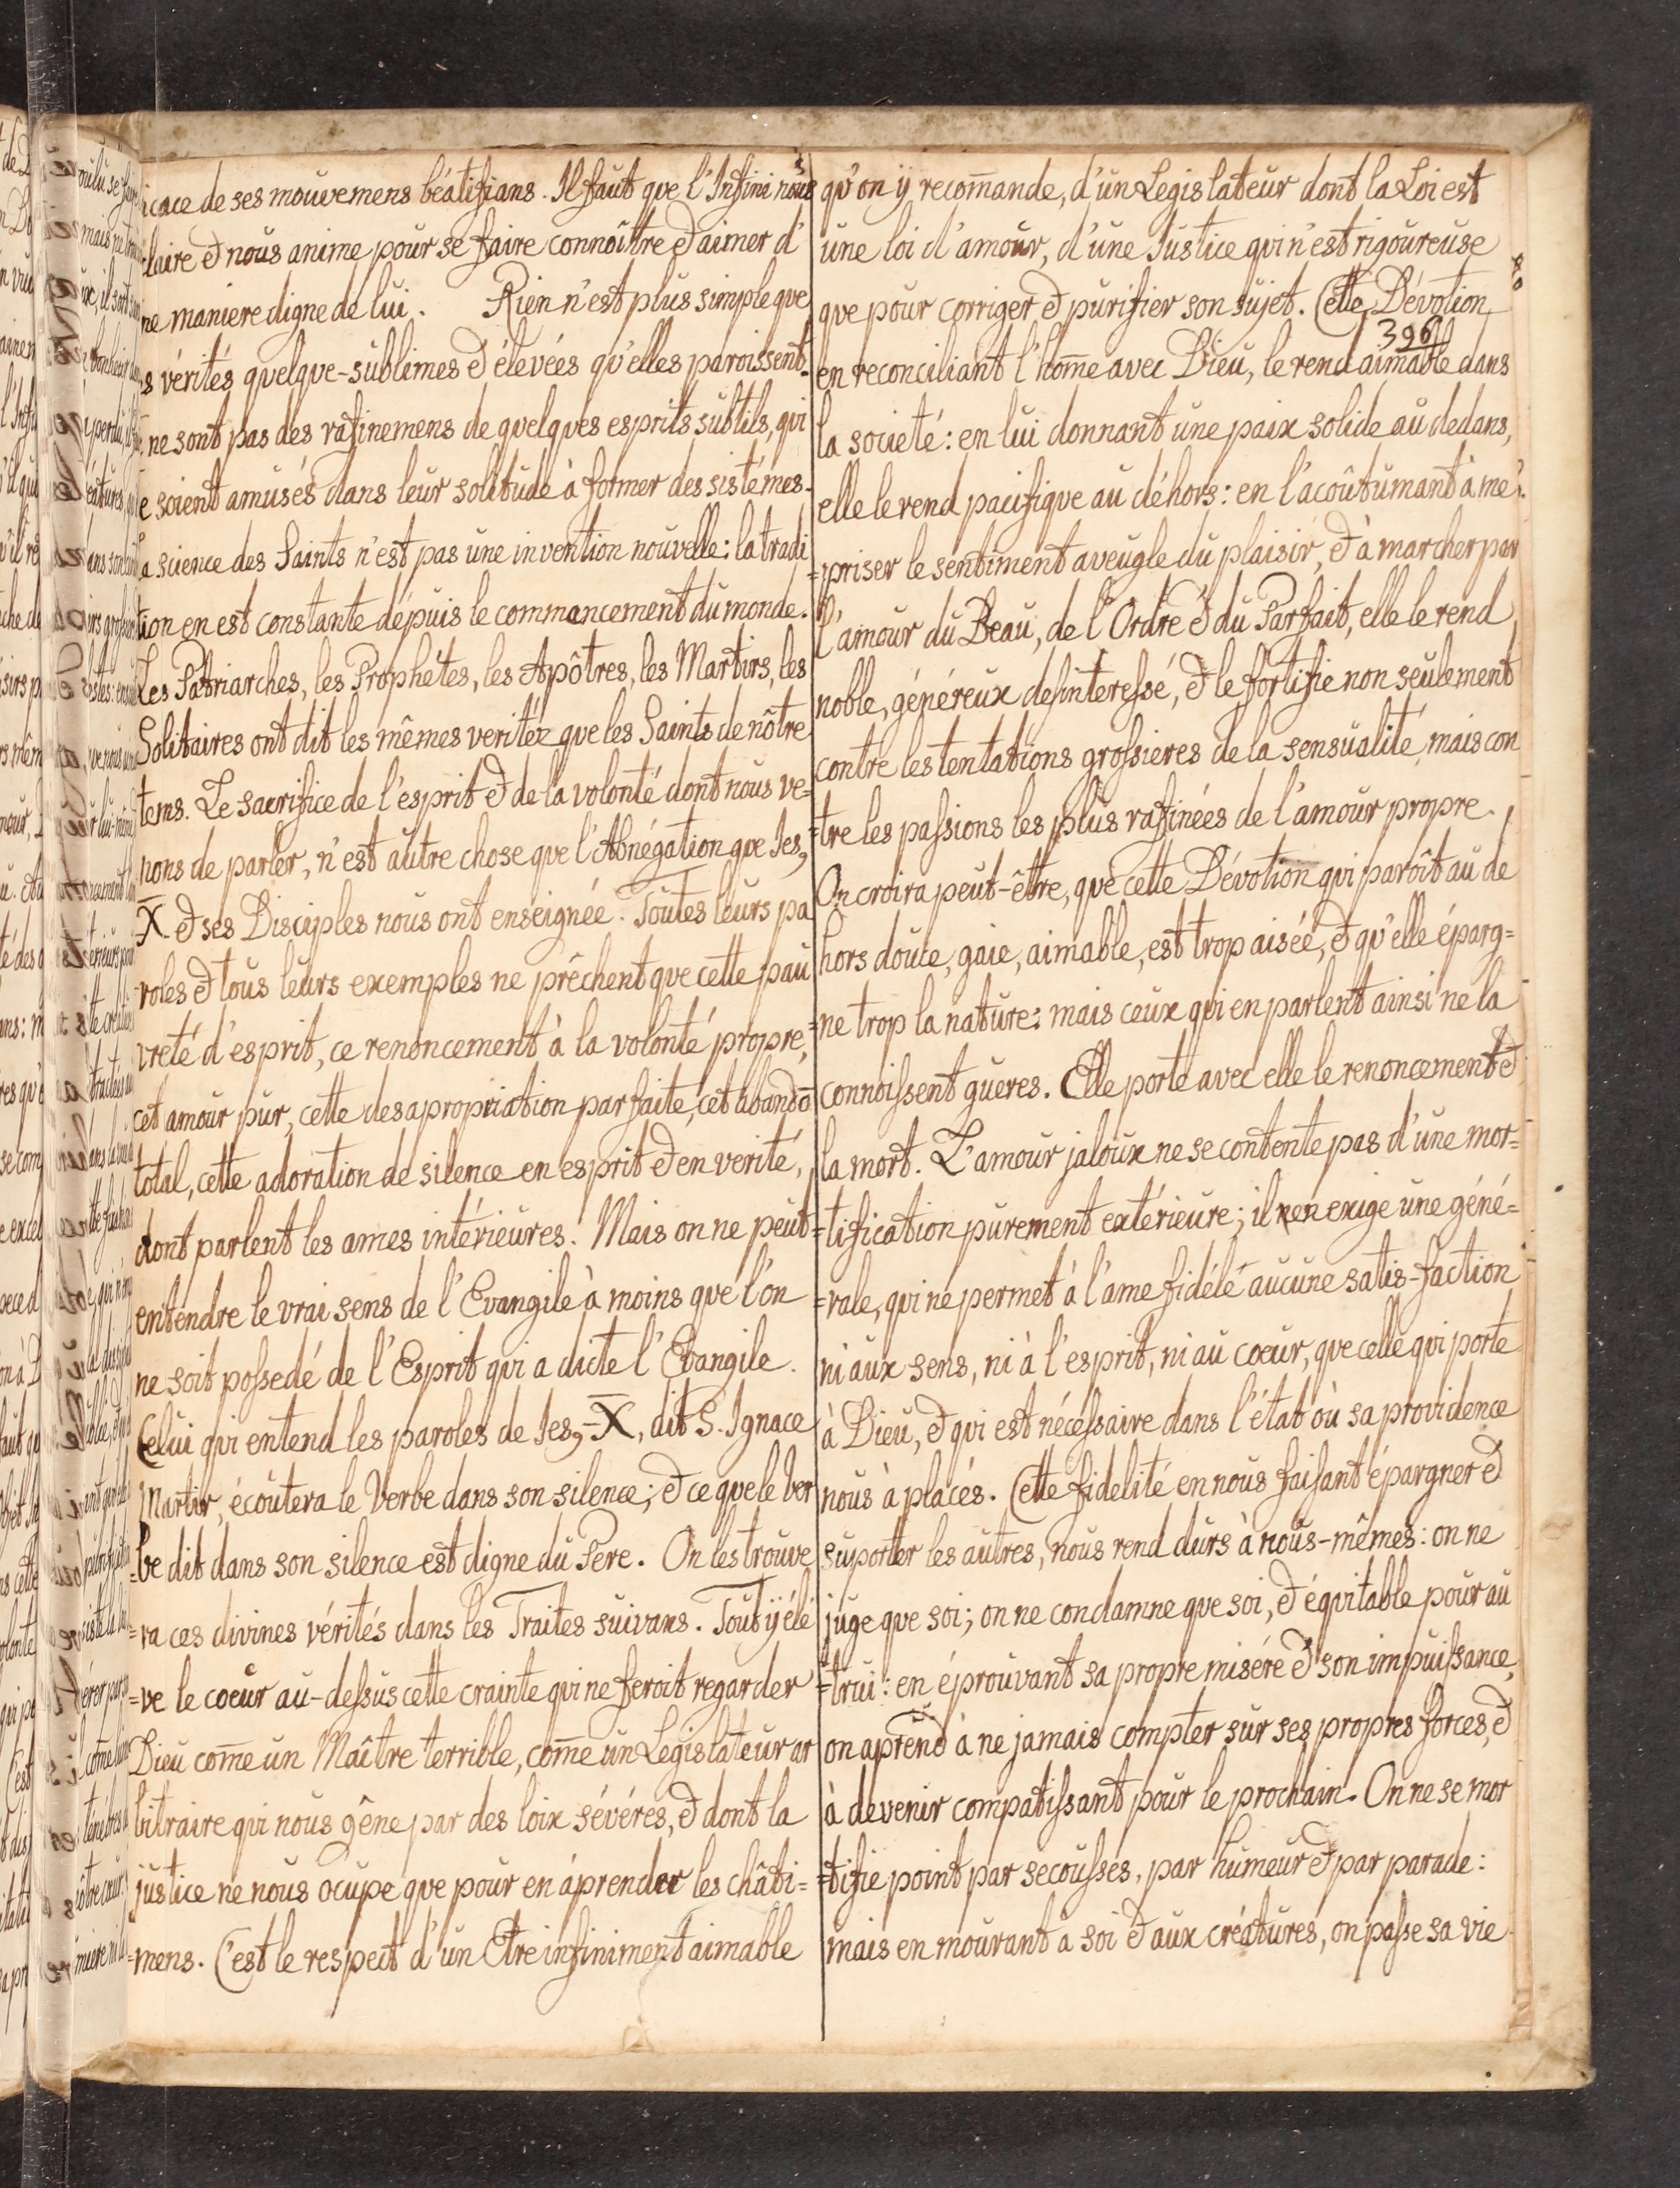 icace de ses mouvemens béatifians. Il faut que l'Infini nous
claire & nous anime pour se faire connoître & aimer d'
ne maniere digne de lui. Rien n'est plus simple que
s vérités quelque-sublimes & élevées qu'elles paroissent.
ne sont pas des rafinemens de quelques esprits subtils, qui
e soient amusés dans leur solitude à former des sistémes.
La science des Saints n'est pas une invention nouvelle: la tradi
tion en est constante dépuis le commencement du monde.
Les Patriarches, les Prophétes, les Apôtres, les Martirs, les
Solitaires ont dit les mêmes veritéz que les Saints de nôtre
tems. Le sacrifice de l'esprit & de la volonté dont nous ve=
nons de parler, n'est autre chose que l'Abnégation que Jes,
X & ses Disciples nous ont enseignée. Toutes leurs pa
roles & tous leurs exemples ne prêchent que cette pau
vreté d'esprit, ce renoncement à la volonté propre,
cet amour pur, cette desapropriation parfaite, cet abandō
total, cette adoration de silence en esprit & en verité,
dont parlent les ames intérieures. Mais on ne peut
entendre le vrai sens de l'Evangile à moins que l'on
ne soit possedé de l'Esprit qui a dicte l'Evangile.
Celui qui entend les paroles de Jes,-X, dit S. Ignace
Martir, écoutera le Verbe dans son silence; & ce que le Ver
=be dit dans son silence est digne du Pere. On les trouve
=ra ces divines vérités dans les Traites suivans. Tout ÿ élé
=ve le coeur au-dessus cette crainte qui ne feroit regarder
Dieu com̄e un Maître terrible, com̄e un Legislateur ar
bitraire qui nous gêne par des loix sévéres, & dont la
justice ne nous ocupe que pour en áprender les châti=
=mens. C'est le respect d'un Etre infiniment aimable
qu'on ÿ recom̄ande, d'un Legislateur dont la Loi est
une loi d'amour, d'une Justice qui n'est rigoureuse
que pour corriger & purifier son sujet. Cette Dévotion
396
en reconciliant l'hom̄e avec Dieu, le rend aimable dans
la societé: en lui donnant une paix solide au dedans,
elle le rend pacifique au déhors: en l'acoûtumant à mé
=priser le sentiment aveugle du plaisir, & à marcher par
l'amour du Beau, de l'Ordre & du Parfait, elle le rend
noble, généreux desinteressé, & le fortifie non seulement
contre les tentations grossieres de la sensualité, mais con
=tre les passions les plus rafinées de l'amour propre.
On croira peut-être, que cette Dévotion qui paroît au de
hors douce, gaie, aimable, est trop aisée, & qu'elle éparg=
=ne trop la nature: mais ceux qui en parlent ainsi ne la
connoissent gueres. Elle porte avec elle le renoncement &
la mort. L'amour jaloux ne se contente pas d'une mor=
=tification purement extérieure; il en exige une géné=
=rale, qui ne permet à l'ame fidélé aucune satis-faction
ni aux sens, ni à l'esprit, ni au coeur, que celle qui porte
à Dieu, & qui est nécessaire dans l'état où sa providence
nous à placés. Cette fidelité en nous faisant épargner &
suporter les autres, nous rend durs à nous-mêmes: on ne
juge que soi; on ne condamne que soi, & équitable pour au
=trui: en éprouvant sa propre misére & son impuissance,
on aprend à ne jamais compter sur ses propres forces, &
à devenir compatissant pour le prochain. On ne se mor
=tifie point par secousses, par humeur & par parade:
mais en mourant a soi & aux créatures, on passe sa vie